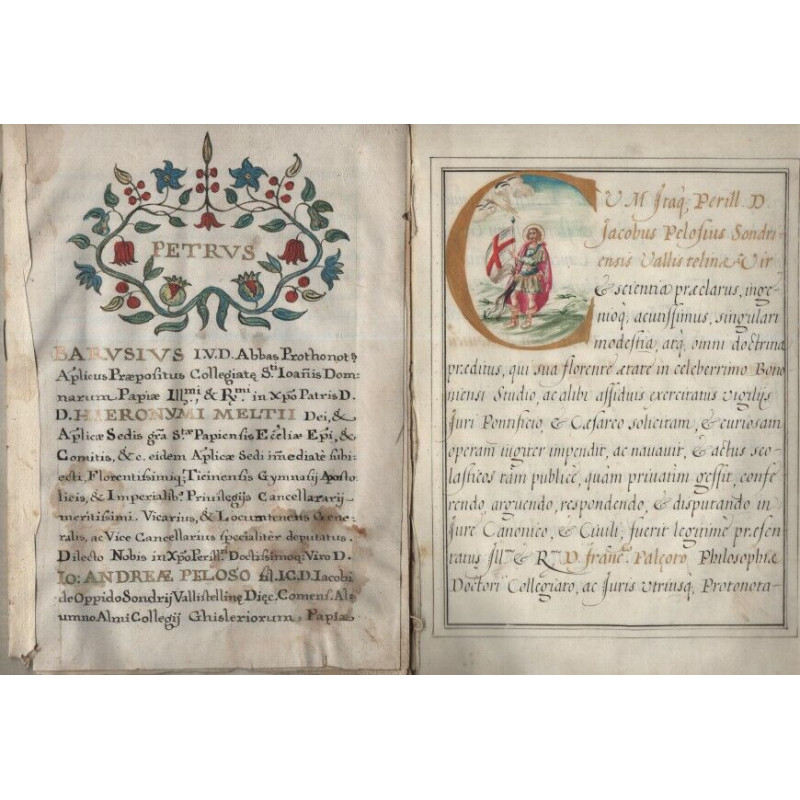 PETRVS
BARVSIVS I.V.D. Abbas Prothonotꝰ
Aplicus Præpositus Collegiatę Sti Ioañis Dom-
narum Papiæ Illmi, & Rmi. in Xpõ Patris D.
D. HIERONYMI MELTII Dei, &
Aplicæ Sedis gra Stæ Papiensis Ecclìæ Epi, &
Comitis, &c. eidem Aplicæ Sedi imediatè subi-
ecti, Florentissimiq; Ticinensis Gymnasij Aposto
licis, & Imperialibꝰ. Priuilegijs Cancellararij
meritissimi. Vicarius, & Locumtenens Gene-
ralis, ac Vice Cancellarius specialitèr deputatus.
Dilecto Nobis in Xpõ Perillri. Doctissimoq; Viro D.
IO: ANDREÆ PELOSO fil. I.C.D. Iacobi
de Oppido Sondrij Vallistellinę Dięc. Comens. Al-
umno Almi Collegij Ghisleriorum, Papiæ
CVM Itaq; Perill. D
Jacobus Pelosius Sondri-
ensis Vallis telinæ Vir
& scientia præclarus, inge-
nioq; acutissimus, singulari
modestia, atq; omni doctrina
præditus, qui sua florente ætate in celeberrimo Bono
niensi Studio, ac alibi assiduis exercitatus vigilijs
Juri Pontificio, & Cæsareo solicitam, & curiosam
operam iugiter impendit, ac nauauit, & actus sco-
lasticos tàm publicè, quàm priuatim gessit, confe
rendo, arguendo, respondendo, & disputando in
Jure Canonico, & Ciuili, fuerit legitimè præsen
tatus Illmo & Rmo D. Francº. Paleoto Philosophiæ
Doctori Collegiato, ac Juris Vtriusq; Protonota-